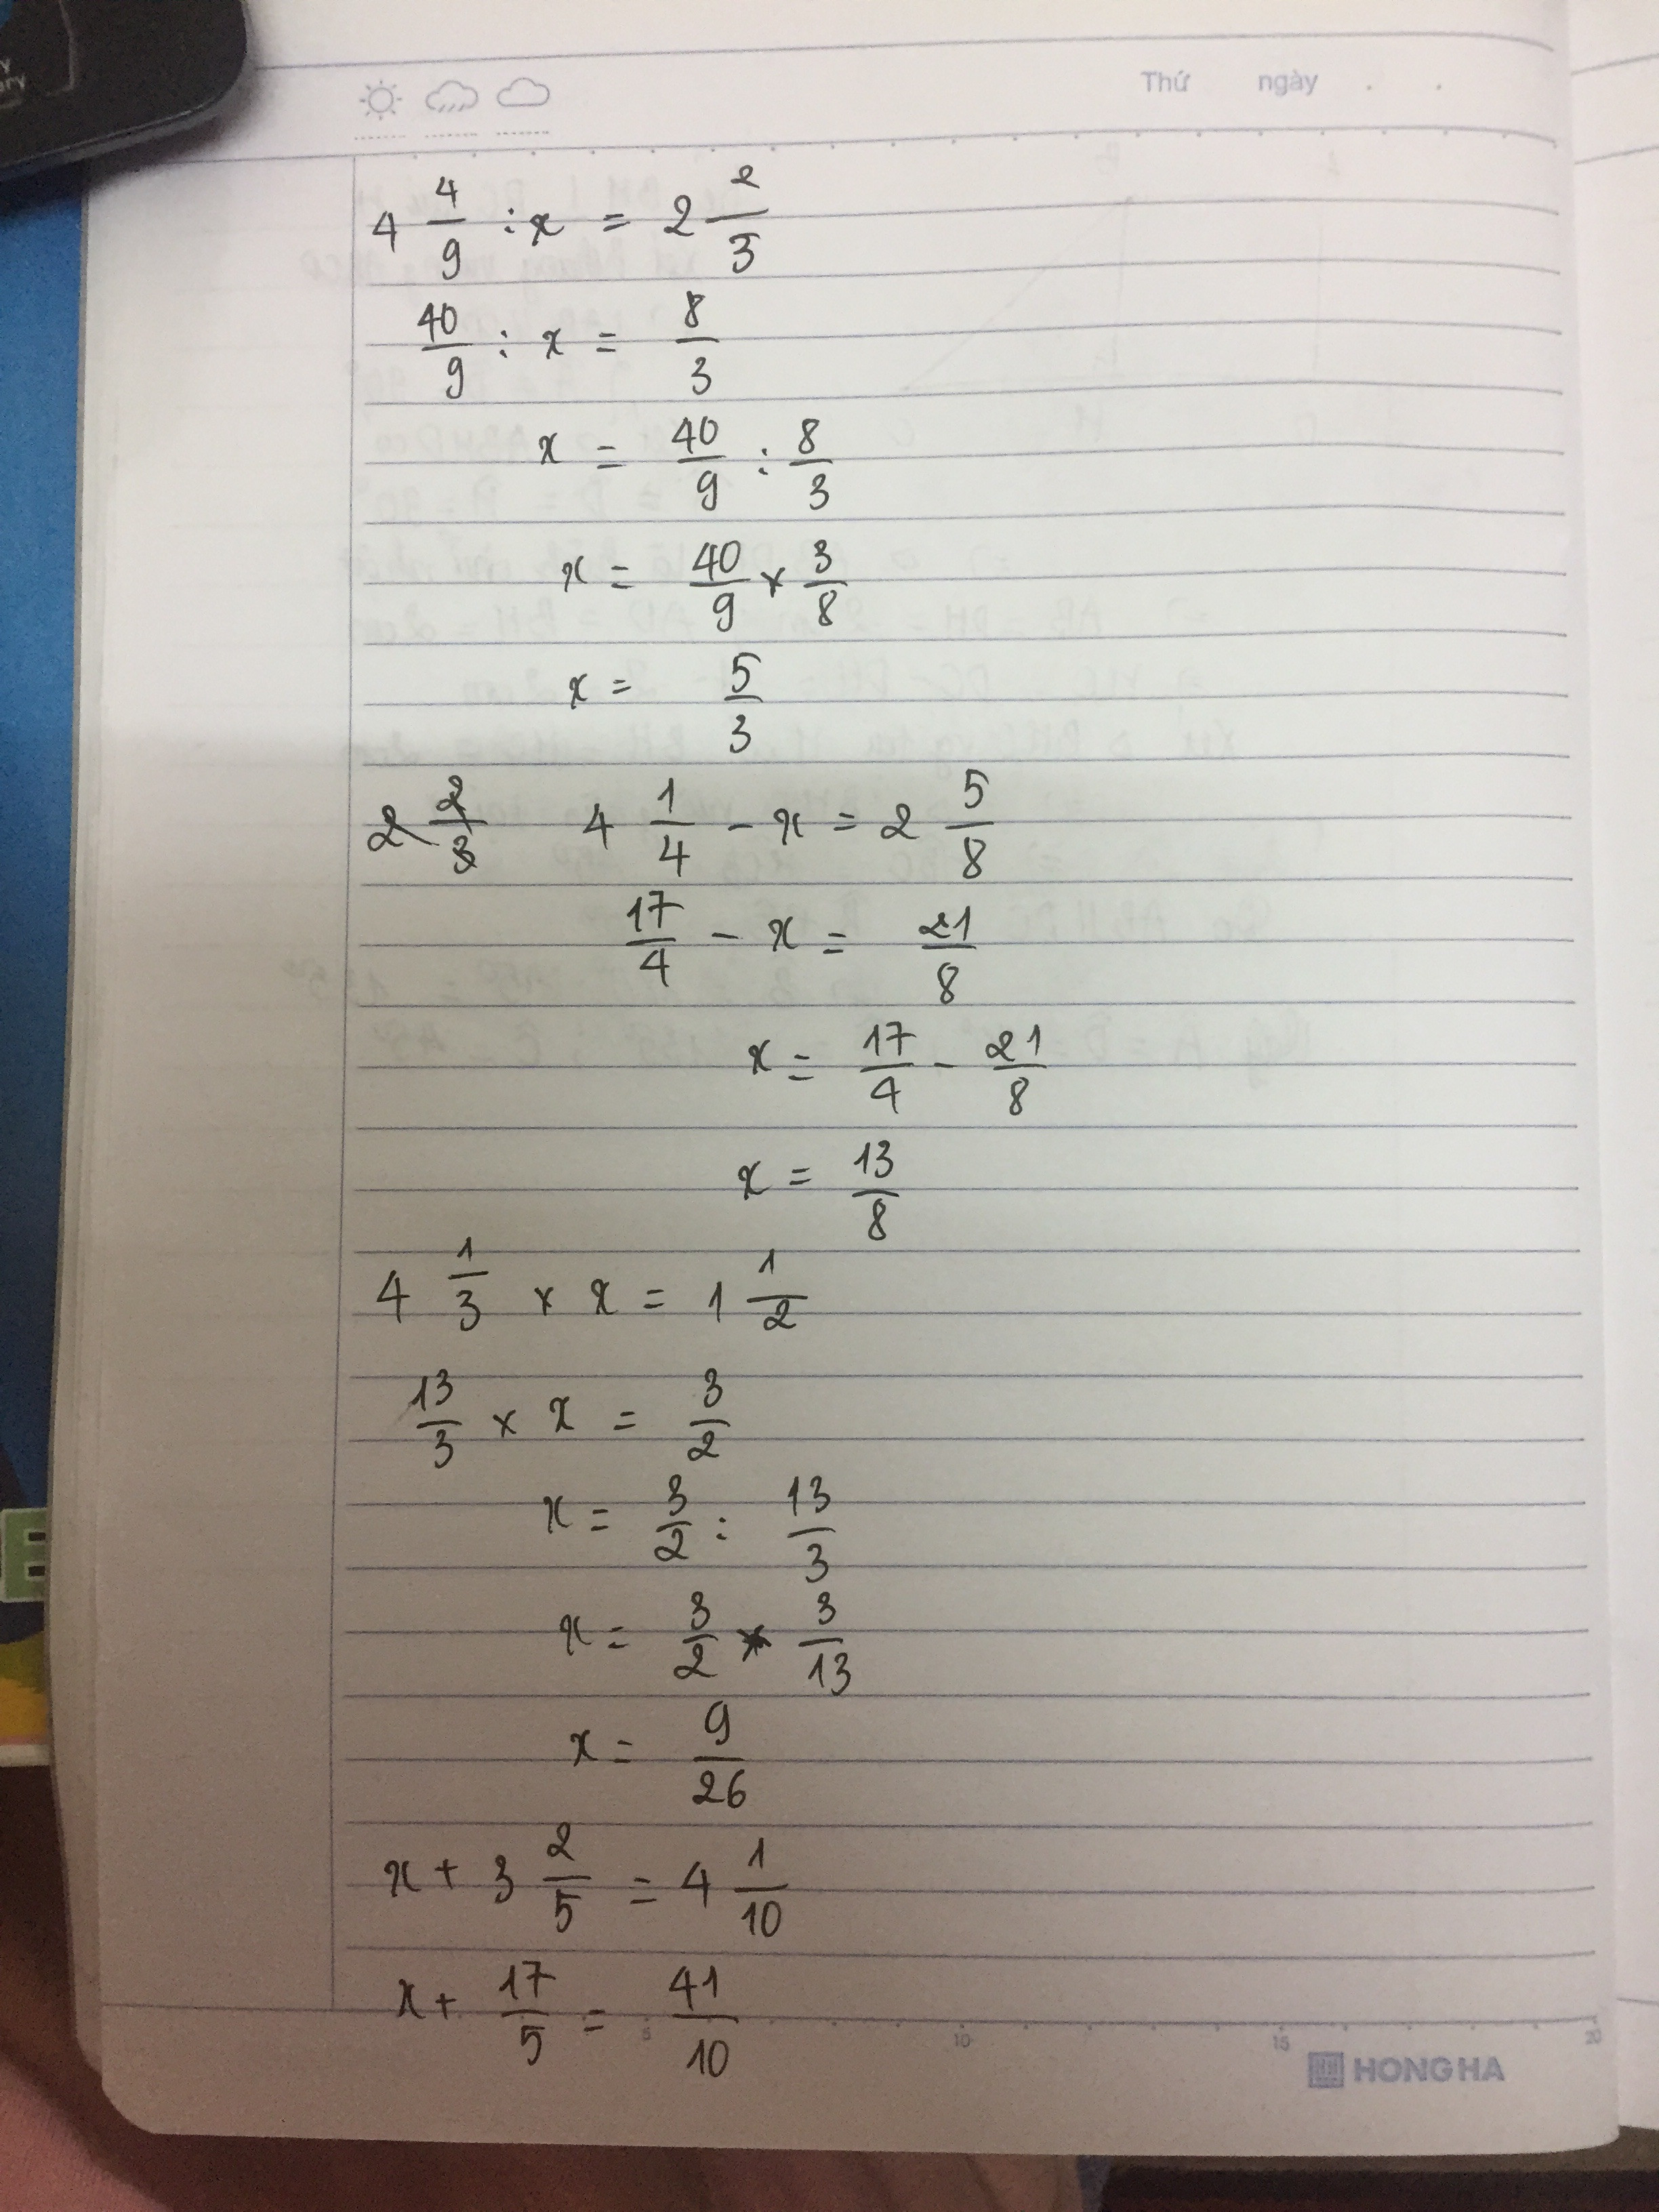 Thứ ngày . .
4 4/9 : x = 2 2/3
40/9 : x = 8/3
x = 40/9 : 8/3
x = 40/9 × 3/8
x = 5/3
2 2/3 4 1/4 - x = 2 5/8
17/4 - x = 21/8
x = 17/4 - 21/8
x = 13/8
4 1/3 × x = 1 1/2
13/3 × x = 3/2
x = 3/2 : 13/3
x = 3/2 × 3/13
x = 9/26
x + 3 2/5 = 4 1/10
x + 17/5 = 41/10
5 10 15 20
HONG HA